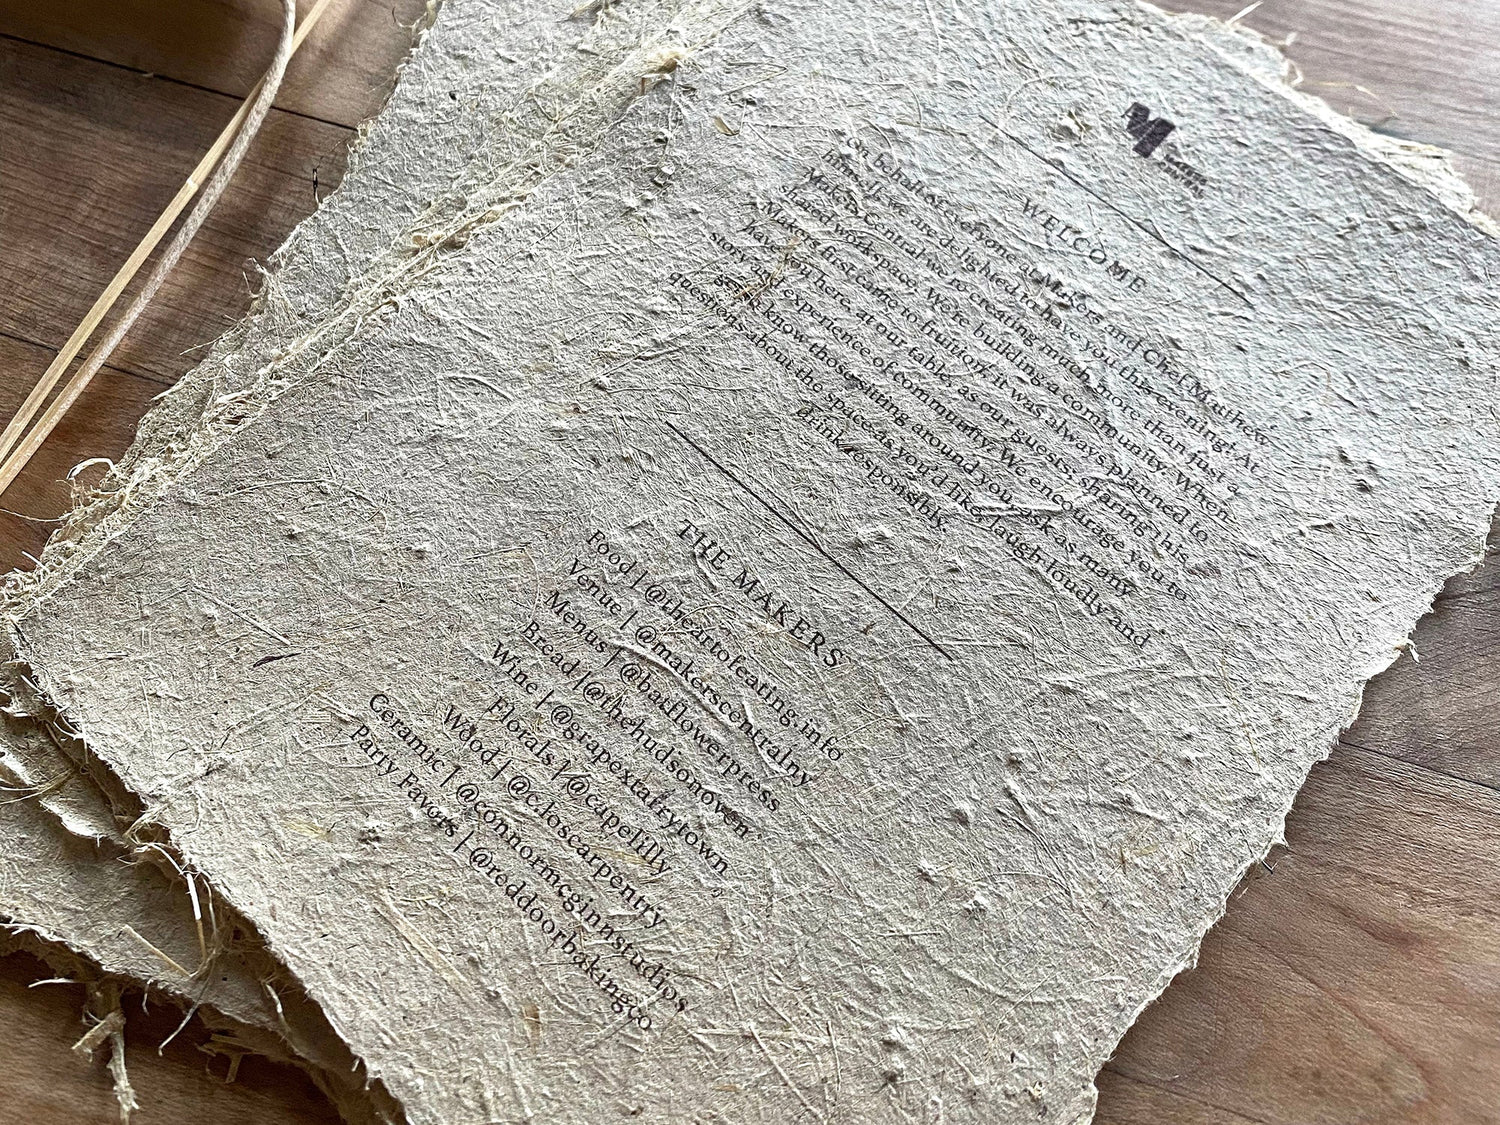 MAKERS
CENTRAL
WELCOME
On behalf of everyone at Makers and Chef Matthew
himself, we are delighted to have you this evening! At
Makers Central we're creating much more than just a
shared workspace. We're building a community. When
Makers first came to fruition, it was always planned to
have you here, at our table, as our guests, sharing this
story and experience of community. We encourage you to
get to know those sitting around you, ask as many
questions about the space as you'd like, laugh loudly and
drink responsibly.
THE MAKERS
Food | @theartofeating.info
Venue | @makerscentralny
Menus | @batflowerpress
Bread | @thehudsonoven
Wine | @grapextarrytown
Florals | @capelilly
Wood | @cjoscarpentry
Ceramic | @connormcginnstudios
Party Favors | @reddoorbakingco